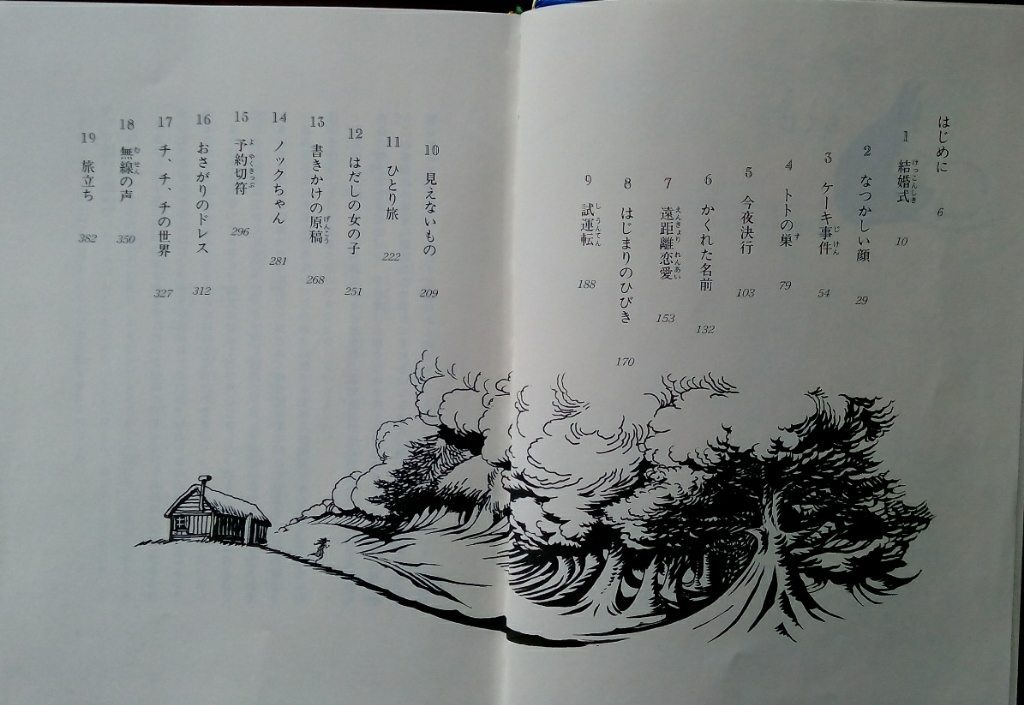 はじめに 6
1 結婚式 けっこんしき 10
2 なつかしい顔 29
3 ケーキ事件 じけん 54
4 トトの巣 す 79
5 今夜決行 103
6 かくれた名前 132
7 遠距離恋愛 えんきょりれんあい 153
8 はじまりのひびき 170
9 試運転 しうんてん 188
10 見えないもの 209
11 ひとり旅 222
12 はだしの女の子 251
13 書きかけの原稿 げんこう 268
14 ノックちゃん 281
15 予約切符 よやくきっぷ 296
16 おさがりのドレス 312
17 チ、チ、チの世界 327
18 無線の声 むせん 350
19 旅立ち 382